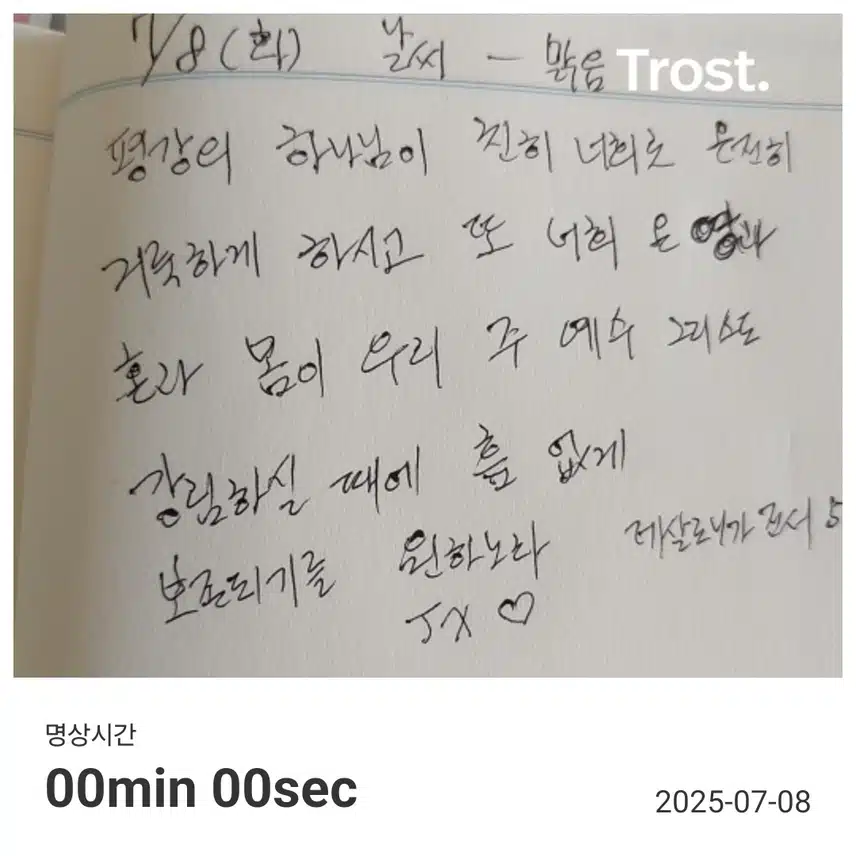 7/8 (화) 날씨 - 맑음 Trost.
평강의 하나님이 친히 너희로 온전히
거룩하게 하시고 또 너희 온 영과
혼과 몸이 우리 주 예수 그리스도
강림하실 때에 흠 없게
보존되기를 원하노라 데살로니가 전서 5
JX ♡
명상시간
00min 00sec
2025-07-08